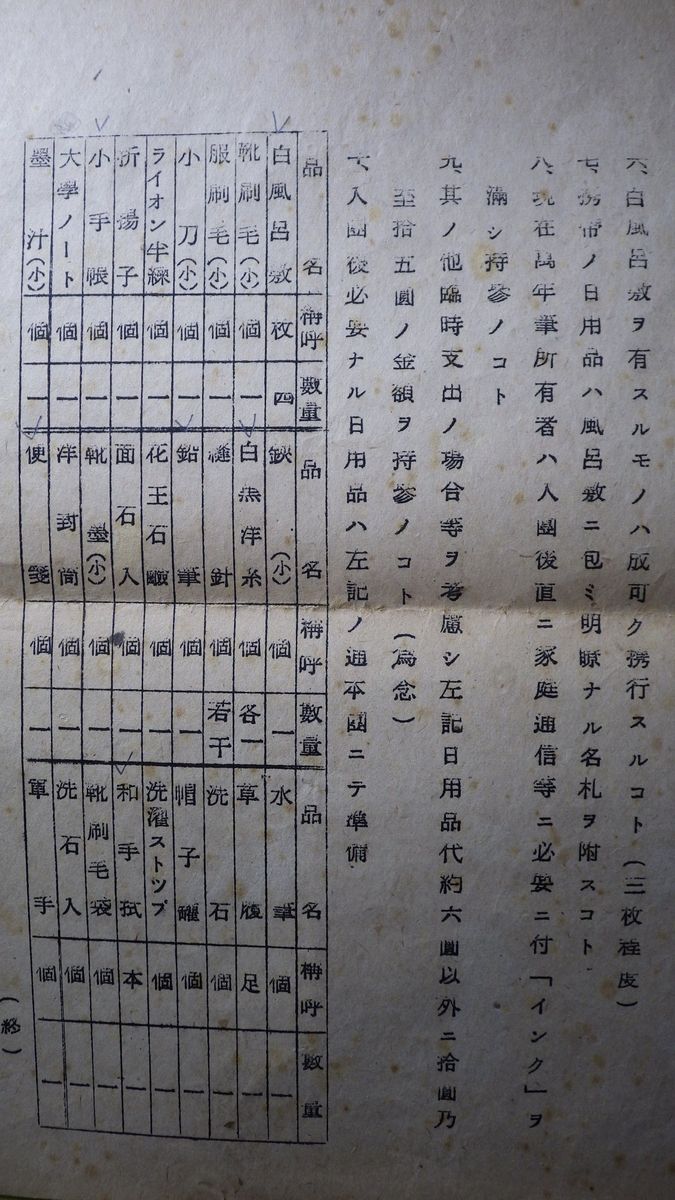 六、白風呂敷ヲ有スルモノハ成可ク携行スルコト(三枚程度)
七、携帶ノ日用品ハ風呂敷ニ包ミ明瞭ナル名札ヲ附スコト
八、現在萬年筆所有者ハ入團後直ニ家庭通信等ニ必要ニ付「インク」ヲ
滿シ持參ノコト
九、其ノ他臨時支出ノ場合等ヲ考慮シ左記日用品代約六圓以外ニ拾圓乃
至拾五圓ノ金額ヲ持參ノコト(爲念)
十、入團後必要ナル日用品ハ左記ノ通本團ニテ準備
品名 稱呼 數量 品名 稱呼 數量 品名 稱呼 數量
白風呂敷 枚 四 鋏(小) 個 一 水筆 個 一
靴刷毛(小) 個 一 白黑洋糸 個 各一 草履 足 一
服刷毛(小) 個 一 縫針 個 若干 洗石 個 一
小刀(小) 個 一 鉛筆 個 一 帽子 個 一
ライオン半練 個 一 花王石鹼 個 一 洗濯ストップ 個 一
折揚子 個 一 面石入 個 一 和手拭 本 一
小手帳 個 一 靴墨(小) 個 一 靴刷毛袋 個 一
大學ノート 個 一 洋封筒 個 一 洗石入 個 一
墨汁(小) 個 一 便箋 個 一 軍手 個 一
(終)